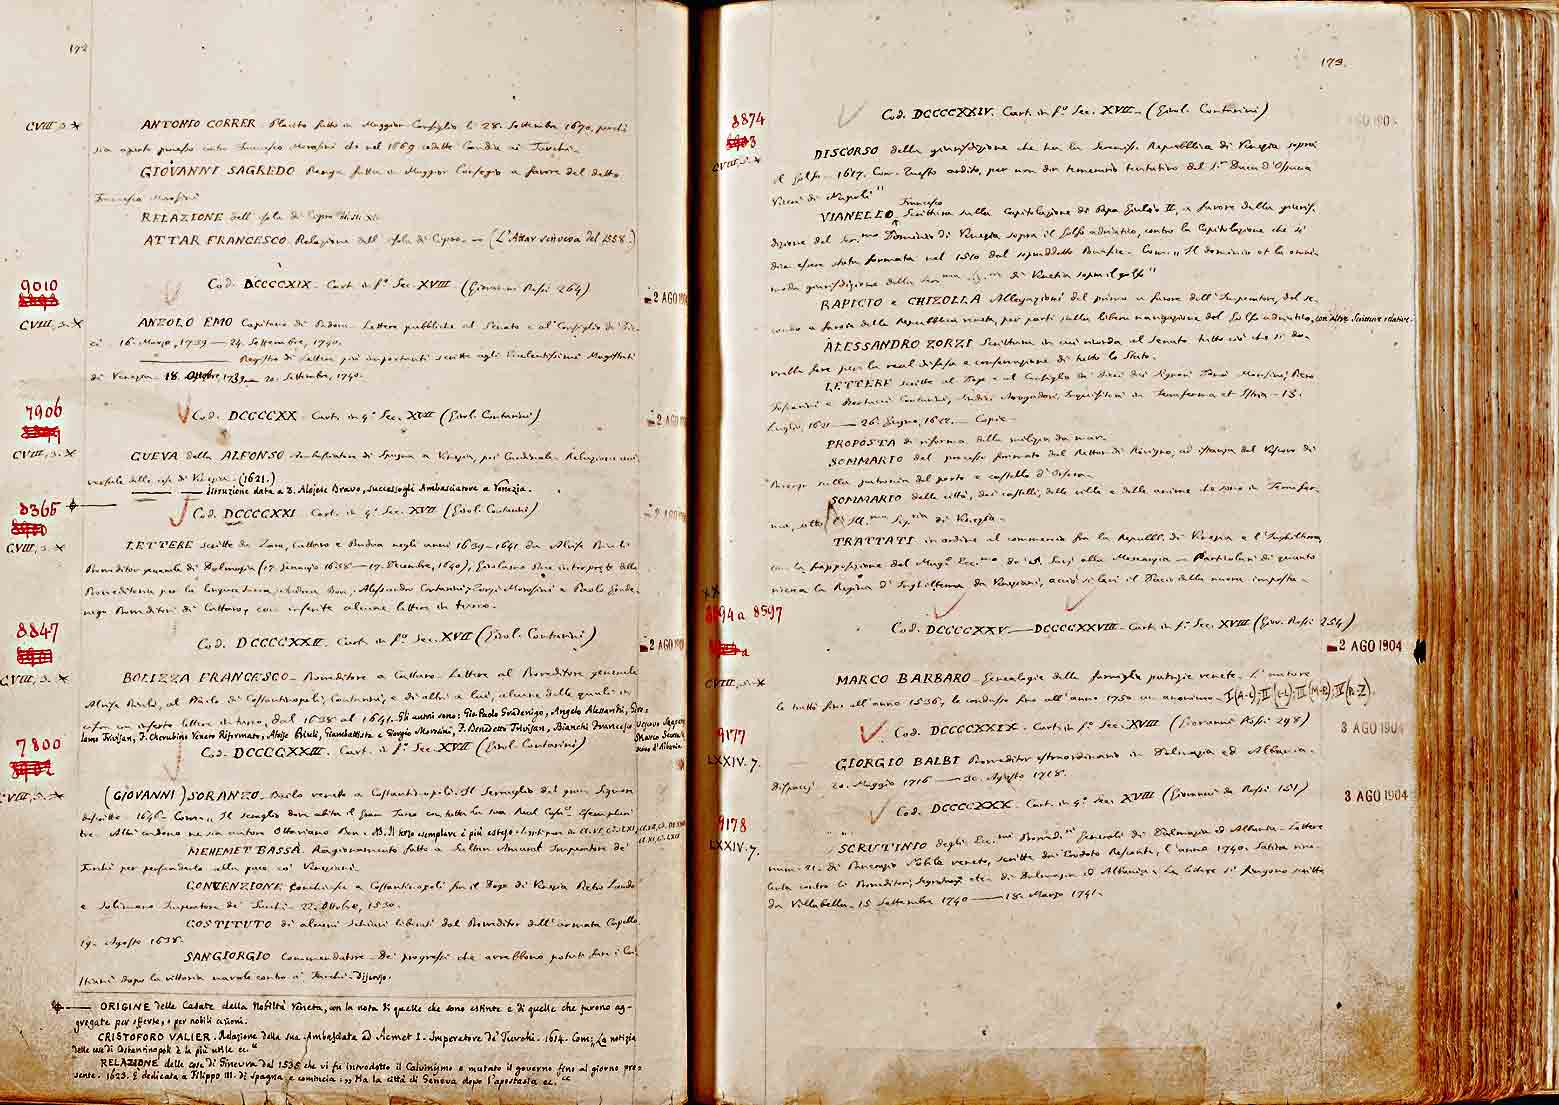 172
CVIII, 5. X
ANTONIO CORRER Plauto fatto in Maggior Consiglio li 28. Settembre 1670, perchè
sia aperto processo contro Francesco Morosini che nel 1669 cedette Candia ai Turchi.
GIOVANNI SAGREDO Renga fatta in Maggior Consegio a favore del detto
Francesco Morosini
RELAZIONE dell'isola di Cipro
ATTAR FRANCESCO. Relazione dell'isola di Cipro. — (L'Attar scriveva del 1558.)
9010
Cod. DCCCCXIX. Cart. in fº. Sec. XVIII (Giovanni Rossi 264)
2 AGO 190
CVIII, 5. X
ANZOLO EMO Capitanio di Padova. Lettere pubbliche al Senato e al Consiglio di Die-
ci. 16. Marzo, 1739 — 24. Settembre, 1740.
— Registro di lettere più importanti scritte agli Eccellentissimi Magistrati
di Venezia. 18. Ottobre, 1739 — 20. Settembre, 1740.
7906
Cod. DCCCCXX. Cart. in 4º. Sec. XVII (Girol. Contarini)
2 AGO
CVIII, 5. X
CUEVA della ALFONSO Ambasciatore di Spagna a Venezia, poi Cardinale. Relazione uni-
versale delle cose di Venezia. (1621.)
— Istruzione data a D. Alojse Bravo, successogli Ambasciatore a Venezia.
8365
Cod. DCCCCXXI. Cart. in 4º. Sec. XVII (Girol. Contarini)
2 AGO
CVIII, 5. X
LETTERE scritte da Zara, Cattaro e Budua negli anni 1639-1641 da Alvise Priuli
Proveditor generale di Dalmazia (17. Gennajo 1638 — 17. Decembre, 1640), Girolamo
Proveditoria per la lingua turca, Andrea Bon, Alessandro Contarini, Zorzi Morosini e Paolo Grade-
nigo Proveditori di Cattaro, con inserte alcune lettere in turco.
8847
Cod. DCCCCXXII. Cart. in fº. Sec. XVII (Girol. Contarini)
2 AGO 190
CVIII, 5. X
BOLIZZA FRANCESCO — Proveditore a Cattaro. Lettere al Proveditore generale
Alvise Priuli, al Bailo di Costantinopoli, Contarini, e di altri a lui, alcune delle quali in
cifra con inserto lettere in turco, dal 1638 al 1641. Gli autori sono: Gio: Paolo Gradenigo, Angelo Alessandri, Giro-
lamo Trivisan, F. Cherubino Veneto Riformato, Aloise Priuli, Giambattista e Giorgio Morosini, F. Benedetto Trivisan, Bianchi Francesco
7800
Cod. DCCCCXXIII. Cart. in fº. Sec. XVII (Girol. Contarini)
CVIII, 5. X
(GIOVANNI) SORANZO. Bailo veneto a Costantinopoli. Il Serraglio del gran Signore
descritto. 1646. Com. „ Il serraglio dove abita il Gran Turco con tutta la sua Real Casa". Esemplari
tre. Altri credono ne sia autore Ottaviano Bon. NB. Il terzo esemplare è più esteso.
MEHEMET BASSÀ. Ragionamento fatto a Sultan Amurat Imperatore de'
Turchi per persuaderlo alla pace co' Veneziani.
CONVENZIONE conchiusa a Costantinopoli fra il Doge di Venezia Pietro Lando
e Solimano Imperatore de' Turchi. 22. Ottobre, 1530.
COSTITUTO di alcuni schiavi liberati dal Proveditor dell'armata Capello.
19. Agosto 1638.
SANGIORGIO Commendatore. De' progressi che avrebbono potuto fare i Cri-
stiani dopo la vittoria navale contro i Turchi. Discorso.
ORIGINE delle Casate della Nobiltà Veneta, con la nota di quelle che sono estinte e di quelle che furono ag-
gregate per offerte, o per nobili azioni.
CRISTOFORO VALIER. Relazione della sua Ambasciata ad Acmet I. Imperatore de' Turchi. 1614. Com: „ La notizia
delle cose di Costantinopoli è la più utile ec."
RELAZIONE delle cose di Ginevra dal 1535 che vi fu introdotto il Calvinismo e mutato il governo fino al giorno pre-
sente. 1625. È dedicata a Filippo III. di Spagna e comincia: „ Ha la città di Geneva dopo l'apostasia ec."
173.
8874
Cod. DCCCCXXIV. Cart. in fº. Sec. XVII — (Girol. Contarini)
AGO 190
CVIII, 5. X
DISCORSO della giurisdizione che ha la Serenissª Repubblica di Venezia sopra
il golfo — 1617. Com. „ Questo ardito, per non dir temerario tentativo del Sr. Duca d'Ossuna
Vicerè di Napoli"
VIANELLO Francesco Scrittura sulla Capitolazione di Papa Giulio II, a favore della giuris-
dizione del Ser.mo Dominio di Venezia sopra il golfo adriatico, contro la Capitolazione che si
dice essere stata formata nel 1510 dal sopraddetto Pontefice. Com. „ Il dominio et la omni-
moda giurisdizione della Ser.ma Sig.ria di Venetia sopra il golfo"
RAPICIO e CHIZOLLA Allegazioni del primo a favore dell'Imperatore, del se-
condo a favore della Repubblica veneta, per parti sulla libera navigazione del Golfo adriatico, con altre Scritture relative.
ALESSANDRO ZORZI Scrittura in cui ricorda al Senato tutto ciò che si do-
vrebbe fare per la real difesa e conservazione di tutto lo Stato.
LETTERE scritte al Doge e al Consiglio di Dieci dai Signori
Contarini, Sindici Avogadori, Inquisitori in Terraferma et Istria. 13.
Luglio, 1621 — 26. Giugno, 1622. — Copie.
PROPOSTA di riforma della milizia da mar.
SOMMARIO del processo formato dal Rettor di Rovigno, ad istanza del Vescovo di
Parenzo sulla giudicatura del porto e castello d'Orsera.
SOMMARIO delle città, dei castelli, delle ville e delle anime che sono in Terrafer-
ma, sotto l'Ill.ma Sig.ria di Venezia.
TRATTATI in ordine al commercio fra la Repubbl. di Venezia e l'Inghilterra,
riceva la Regina d'Inghilterra da Veneziani, acciò si levi il Dacio della nuova imposta.
8594 a 8597
Cod. DCCCCXXV — DCCCCXXVIII. Cart. in fº. Sec. XVIII (Giov. Rossi 254)
2 AGO 1904
CVIII, 5. X
MARCO BARBARO. Genealogie delle famiglie patrizie venete. L'autore
le trattò fino all'anno 1536, le condusse fino all'anno 1750 un anonimo. I (A-B); II (C-L); III (M-Q); IV (R-Z).
9177
Cod. DCCCCXXIX. Cart. in fº. Sec. XVIII (Giovanni Rossi 248)
3 AGO 1904
LXXIV. 7.
GIORGIO BALBI Proveditor estraordinario in Dalmazia ed Albania.
Dispacci. 20. Maggio 1716 — 30. Agosto 1718.
Cod. DCCCCXXX. Cart. in 4º. Sec. XVIII (Giovanni de Rossi 151)
3 AGO 1904
9178
LXXIV. 7.
SCRUTINIO degli Ecc.mi Proved.ri Generali di Dalmazia ed Albania. Lettere
num. 21. di Panerazio Nobile veneto, scritte da Erodoto Rescanti, l'anno 1740. Satira vio-
lenta contro li Proveditori, Segretarj etc. di Dalmazia ed Albania. Le lettere si fingono scritte
da Villabella. 15 Settembre 1740 — 18. Marzo 1741.